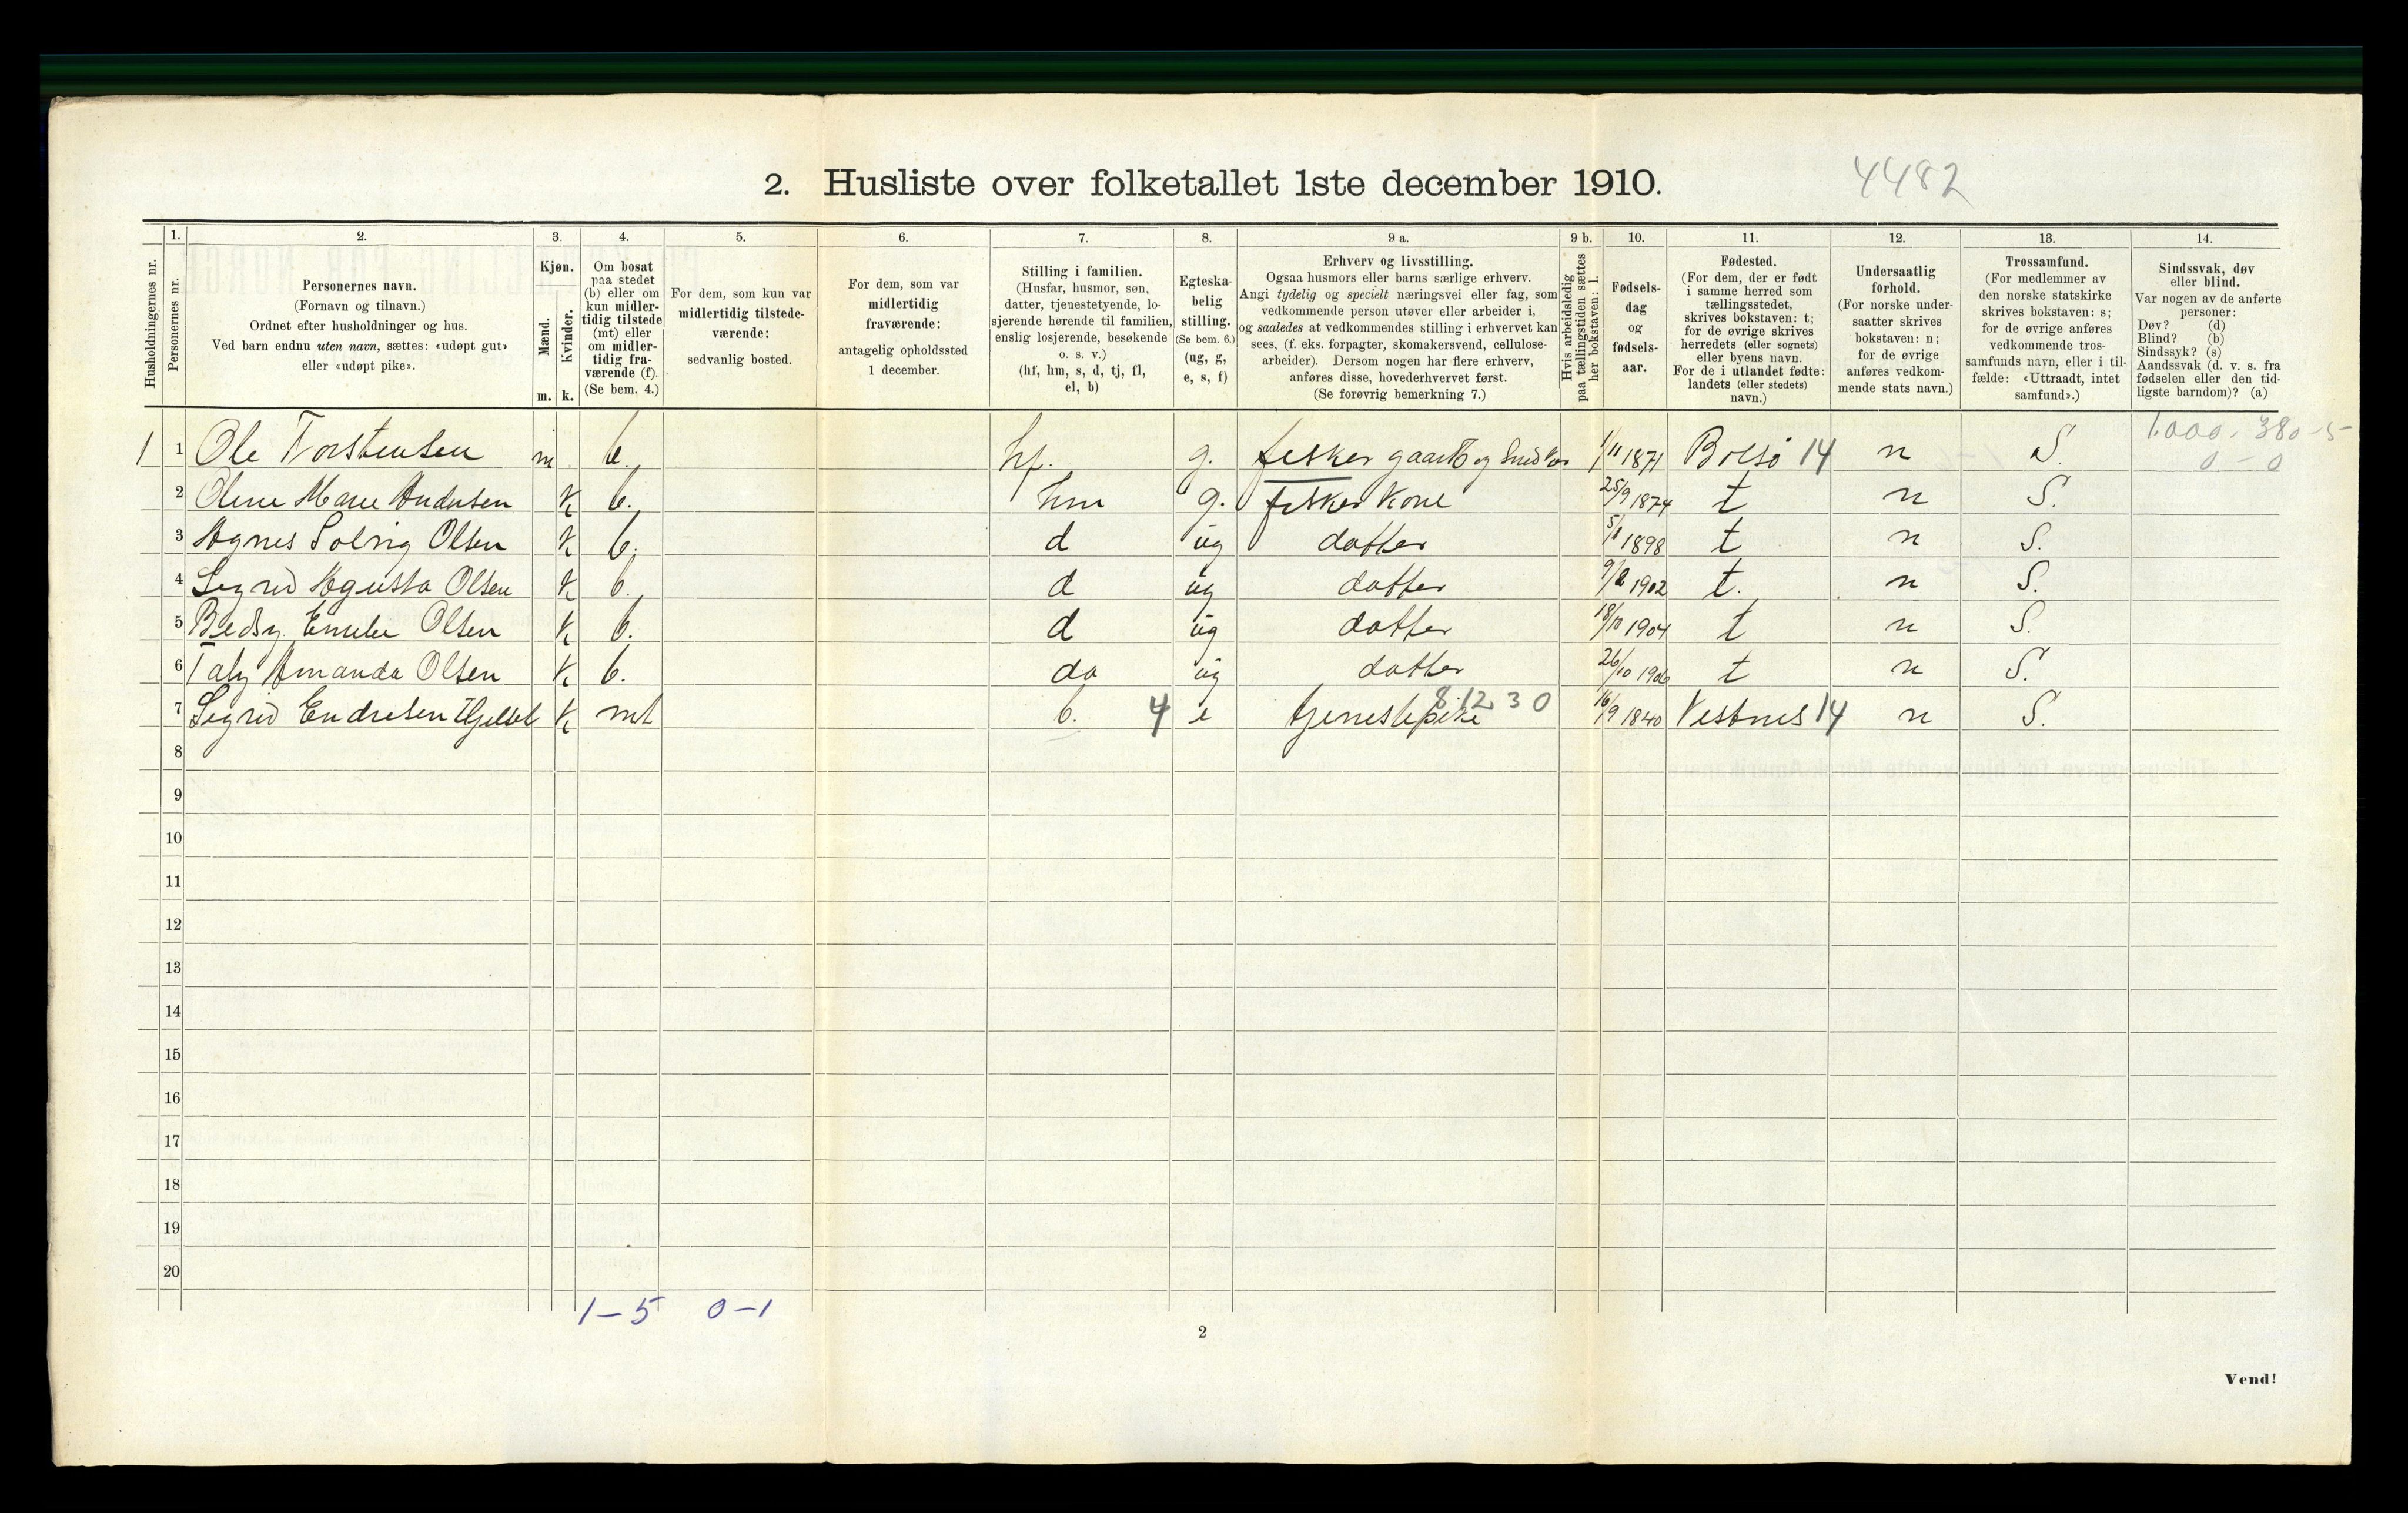 2. Husliste over folketallet 1ste december 1910.
4482
Husholdningernes nr.
1.
Personernes nr.
2.
Personernes navn.
(Fornavn og tilnavn.)
Ordnet efter husholdninger og hus.
Ved barn endnu uten navn, sættes: «udøpt gut»
eller «udøpt pike».
3.
Kjøn.
Mænd.
Kvinder.
m. k.
4.
Om bosat
paa stedet
(b) eller om
kun midler-
tidig tilstede
(mt) eller
om midler-
tidig fra-
værende (f).
(Se bem. 4.)
5.
For dem, som kun var
midlertidig tilstede-
værende:
sedvanlig bosted.
6.
For dem, som var
midlertidig
fraværende:
antagelig opholdssted
1 december.
7.
Stilling i familien.
(Husfar, husmor, søn,
datter, tjenestetyende, lo-
sjerende hørende til familien,
enslig losjerende, besøkende
o. s. v.)
(hf, hm, s, d, tj, fl,
el, b)
8.
Egteska-
belig
stilling.
(Se bem. 6.)
(ug, g,
e, s, f)
9 a.
Erhverv og livsstilling.
Ogsaa husmors eller barns særlige erhverv.
Angi tydelig og specielt næringsvei eller fag, som
vedkommende person utøver eller arbeider i,
og saaledes at vedkommendes stilling i erhvervet kan
sees, (f. eks. forpagter, skomakersvend, cellulose-
arbeider). Dersom nogen har flere erhverv,
anføres disse, hovederhvervet først.
(Se forøvrig bemerkning 7.)
9 b.
Hvis arbeidsledig
paa tællingstiden sættes
her bokstaven: l.
10.
Fødsels-
dag
og
fødsels-
aar.
11.
Fødested.
(For dem, der er født
i samme herred som
tællingsstedet,
skrives bokstaven: t;
for de øvrige skrives
herredets (eller sognets)
eller byens navn.
For de i utlandet fødte:
landets (eller stedets)
navn.)
12.
Undersaatlig
forhold.
(For norske under-
saatter skrives
bokstaven: n;
for de øvrige
anføres vedkom-
mende stats navn.)
13.
Trossamfund.
(For medlemmer av
den norske statskirke
skrives bokstaven: s;
for de øvrige anføres
vedkommende tros-
samfunds navn, eller i til-
fælde: «Uttraadt, intet
samfund».)
14.
Sindssvak, døv
eller blind.
Var nogen av de anførte
personer:
Døv? (d)
Blind? (b)
Sindssyk? (s)
Aandssvak (d. v. s. fra
fødselen eller den tid-
ligste barndom)? (a)
1000 - 380 - 5
0 - 0
1 1 Ole Torstensen m b. hf. g. fisker gaardb og 1/11 1871 Bolsø 14 n S.
2 Oline Marie Andersen k b. hm g. fisker kone 25/9 1874 t n S.
3 Agnes Solvig Olsen k b. d ug datter 5/1 1898 t n S.
4 Sigrid Agusta Olsen k b. d ug datter 9/2 1902 t. n S.
5 Bedsy Emelie Olsen k b. d ug datter 18/10 1904 t n S.
6 Amanda Olsen k b. do ug datter 26/10 1906 t n S.
7 Sigrid Endresen Hjelset k mt b. 4 e tjenestepike 8.12 30 16/9 1840 Vestnes 14 n S.
8
9
10
11
12
13
14
15
16
17
18
19
20
1 - 5 0 - 1
2
Vend!